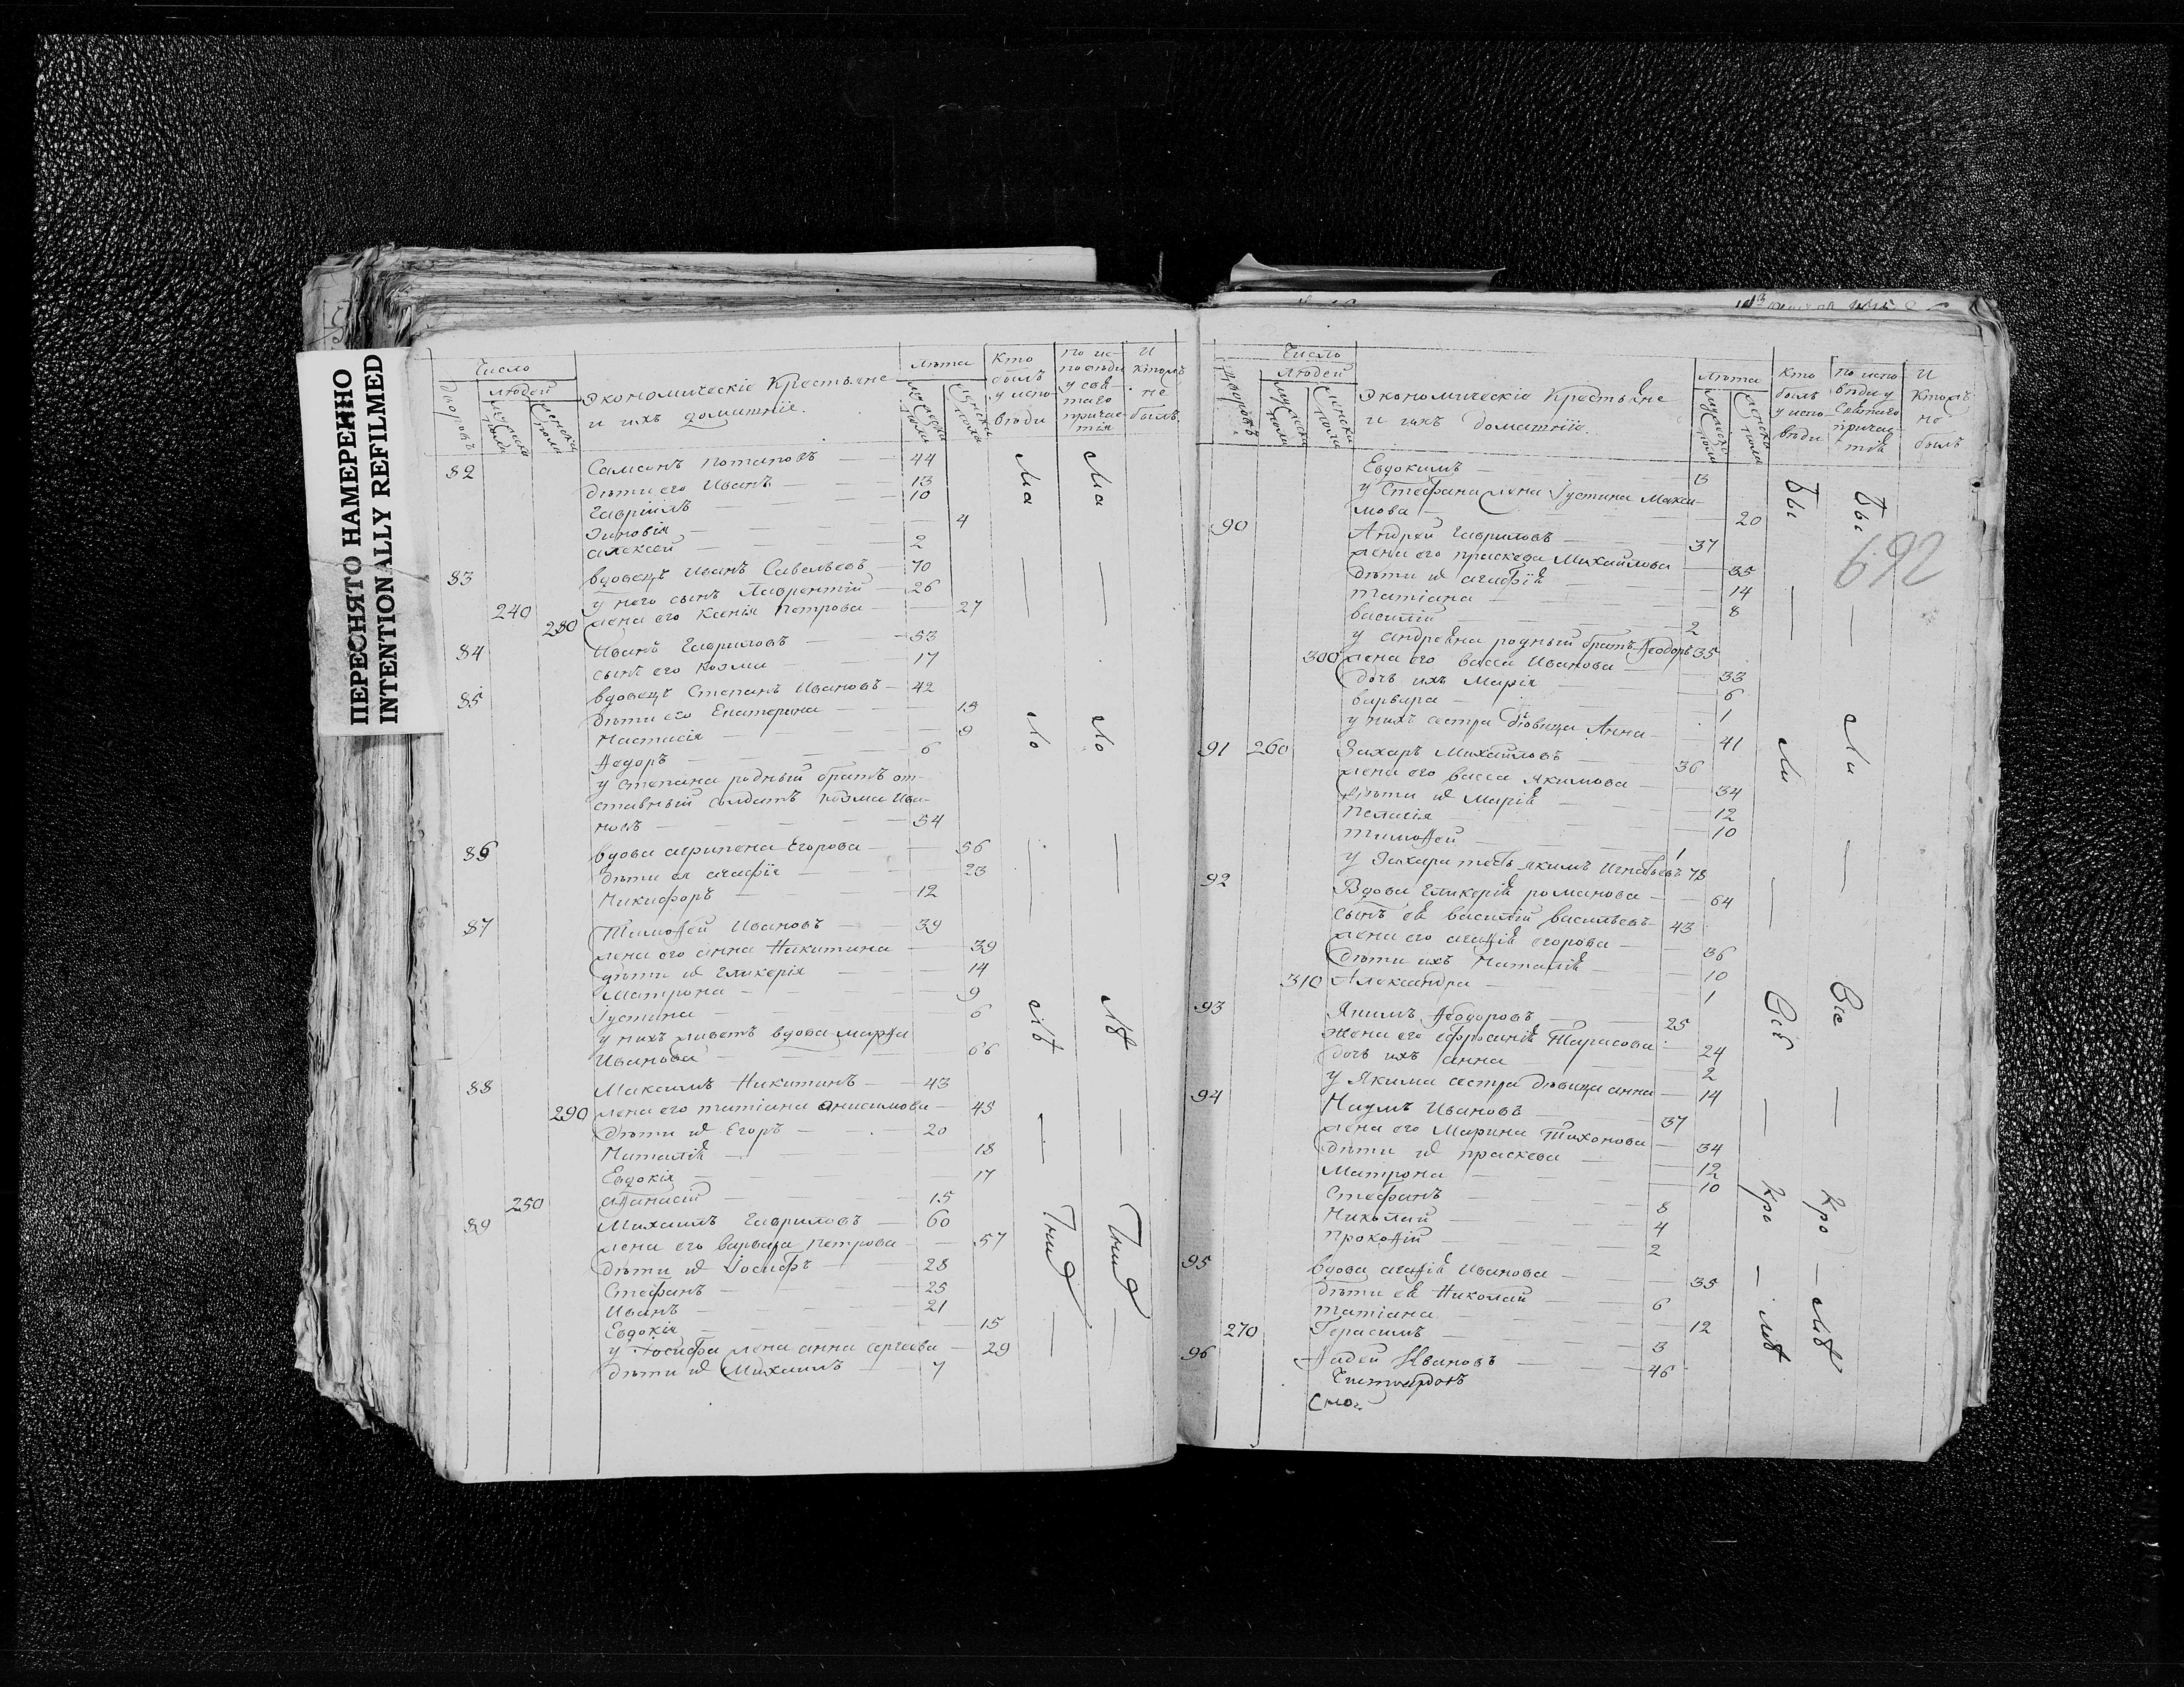 ПЕРЕСНЯТО НАМЕРЕННО
INTENTIONALLY REFILMED
Число
дворовъ
людей
мужеска пола
женска пола
Экономическіе Крестьяне
и ихъ домашніе.
лѣта
мужеска пола
женска пола
Кто былъ у исповѣди
И кто жъ не былъ
82 Самсонъ Потаповъ 44
дѣти его Иванъ 13
Гавріилъ 10
Зиновія 4
Алексѣй 2
83 вдовецъ Иванъ Савельевъ 70
у него сынъ Лаврентій 26
240 280 жена его Ксенія Петрова 27
84 Иванъ Гавриловъ 53
сынъ его Козма 17
85 вдовецъ Степанъ Ивановъ 42
дѣти его Екатерина 13
Настасія 9
Ѳедоръ 6
у Степана родный братъ от-
ставный солдатъ Козма Ива-
новъ 54
86 вдова Агрипена Егорова 56
дѣти ея Агафія 23
Никифоръ 12
87 Тимоѳей Ивановъ 39
жена его Анна Никитина 39
дѣти их Гликерія 14
Матрона 9
Іустина 6
у нихъ живетъ вдова Марѳа
Иванова 66
88 Максимъ Никитинъ 43
290 жена его Татіана Анисимова 43
дѣти их Егоръ 20
Наталія 18
Евдокія 17
250 Аѳанасій 15
89 Михаилъ Гавриловъ 60
жена его Варвара Петрова 57
дѣти их Іосифъ 28
Стефанъ 25
Иванъ 21
Евдокія 15
у Іосифа жена Анна Сергеева 29
дѣти их Михаилъ 7
Число
дворовъ
людей
мужеска пола
женска пола
Экономическіе Крестьяне
и ихъ домашніе.
лѣта
мужеска пола
женска пола
Кто былъ у исповѣди
И кто жъ не былъ
692
Евдокимъ 13
у Стефана жена Іустина Макси-
мова 20
90 Андрей Гавриловъ 37
жена его Праскева Михаилова 35
дѣти их Агафія 14
Татіана 8
Василій 2
у Андреяна родный братъ Ѳеодоръ 35
300 жена его Васса Иванова 33
дочь ихъ Марія 6
Варвара 1
у нихъ сестра дѣвица Анна 41
91 260 Захаръ Михайловъ 36
жена его Васса Якимова 34
дѣти их Марія 12
Пелагія 10
Тимоѳей 1
у Захара тесть Якимъ Игнатьевъ 78
92 Вдова Гликерія Романова 64
сынъ ея Василій Васильевъ 43
жена его Агафія Егорова 36
дѣти ихъ Наталія 10
310 Александра 1
93 Якимъ Ѳеодоровъ 25
Жена его Ефросинія Тарасова 24
дочь ихъ Анна 2
у Якима сестра дѣвица Анна 14
94 Наумъ Ивановъ 37
жена его Марина Тихонова 34
дѣти их Праскева 12
Матрона 10
Стефанъ 8
Николай 4
Прокоѳій 2
95 вдова Агафія Иванова 35
дѣти ея Николай 6
Татіана 12
270 Герасимъ 3
96 Ѳадей Ивановъ 46